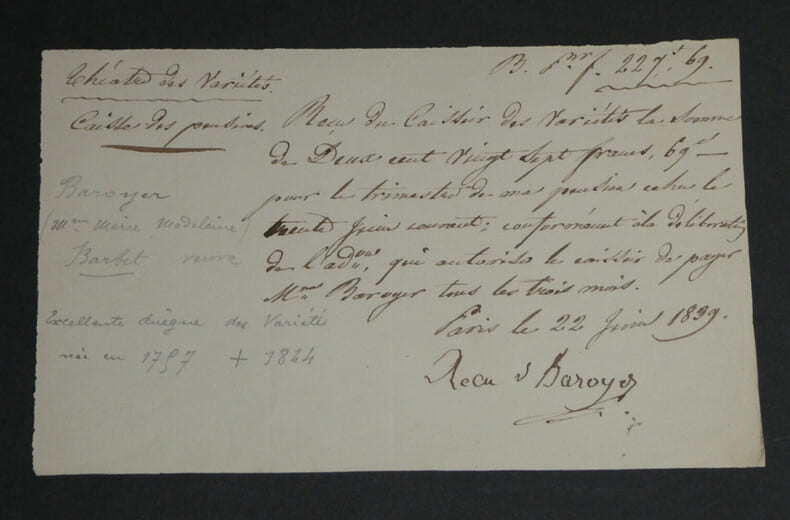 Théatre des Variétés.
B. p.r f. 227.f 69.
Caisse des pensions.
Recu du Caissier des Variétés la Somme
de Deux cent Vingt Sept francs, 69c
pour le trimestre de ma pension echu le
trente Juin courant; conformément à la délibération
de l'adon, qui autorise le caissier de payer
Mme Baroyer tous les trois mois.
Paris le 22 Juin 1839.
Recu Baroyer
Baroyer
(Mme Marie Madeleine)
Barbet veuve
Excellente duègne des Variétés
née en 1757 + 1844